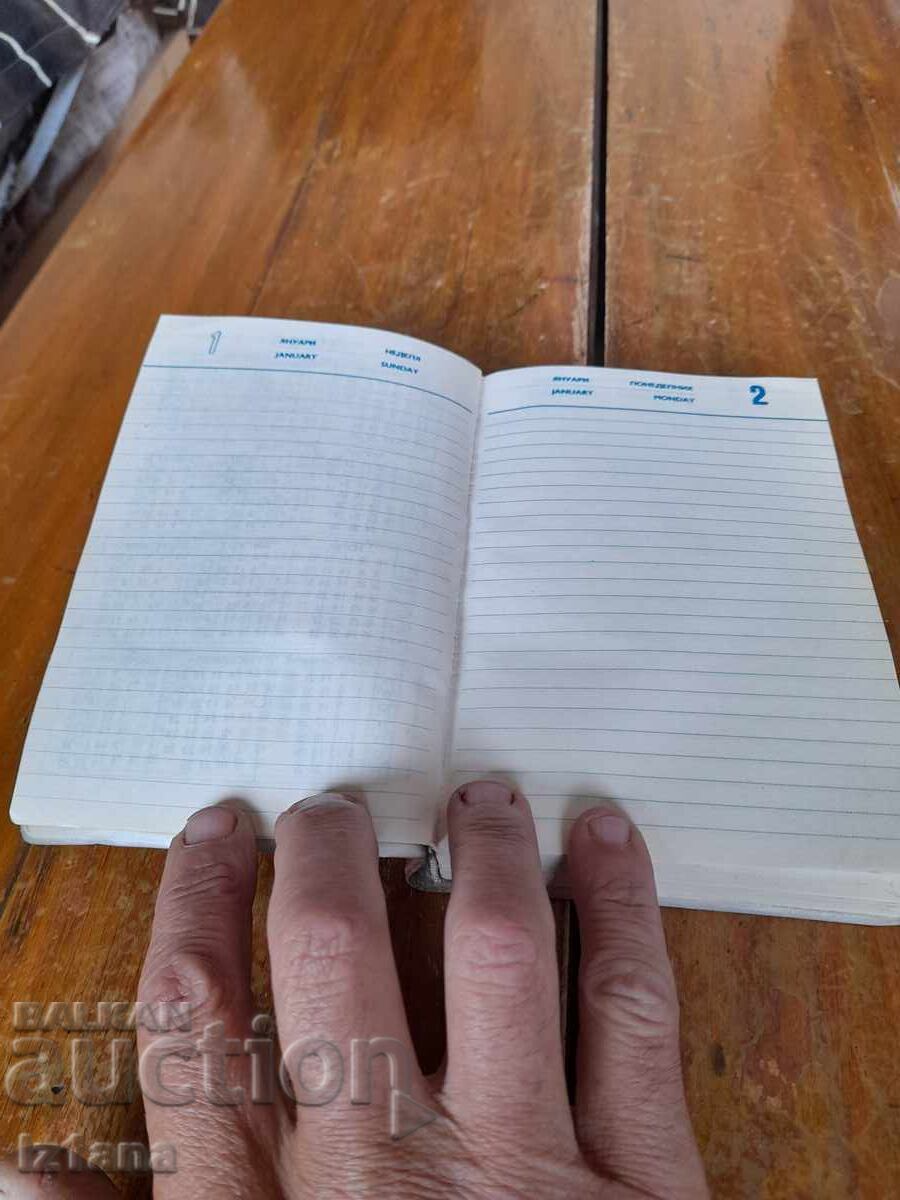 1 ЯНУАРИ НЕДЕЛЯ
JANUARY SUNDAY
ЯНУАРИ ПОНЕДЕЛНИК 2
JANUARY MONDAY
BALKAN
auction
iz1ana